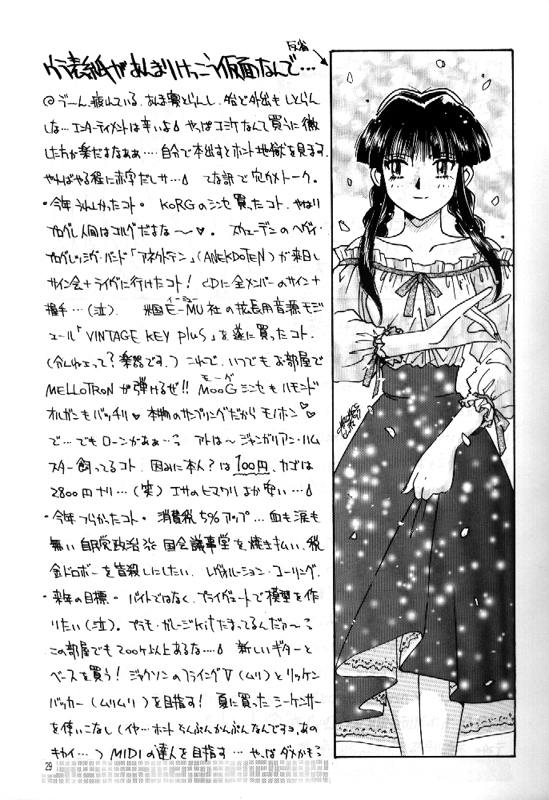 反省
ウラ表紙があんまりけっこう仮面なんで…
◎づーん、疲れている。あま寝とらんし、殆ど外出もしとらん
しな… エンターティメントは辛いよ やっぱコミケなんて買うに徹
した方が楽だよなぁぁ…. 自分で本出すとホント地獄を見ます。
やればやる程に赤字だしサ…  てな訳で穴うめトーク。
・今年うれしかったコト。 KORGのシンセ買ったコト、やはり
プログレ人間はコルグだよな〜♥。 スウェーデンのヘヴィ・
プログレッシヴ・バンド「アネクドテン」(ANEKDOTEN)が来日し
サイン会+ライヴに行けたコト! CDに全メンバーのサイン+
握手…(泣). 米国E-MU社の拡長用音源モジ
イーミュー
ュール「VINTAGE KEY Plus」を遂に買ったコト.
(なんねぇって? 楽器です。) これで、いつでもお部屋で
MELLOTRONが弾けるぜ!! MOOGシンセもハモンド
モーグ
オルガンもバッチリ♥ 本物のサンプリングだからモノホン♡
で…でもローンがあぁ…? アトは〜ジャンガリアン・ハム
スター飼ってるコト. 因みに本人?は100円、カゴは
2800円ナリ…(笑) エサのヒマワリより安い…
・今年つらかったコト。 消費税5%アップ…血も涙も
無い自民党政治 国会議事堂を焼き払い、税
金ドロボーを皆殺しにしたい. レヴォルーション・コーリング.
・来年の目標。 バイトではなく、プライヴェートで模型を作
りたい(泣)。プラモ・ガレージKitたまってるんだァ〜?
この部屋でも200ケ以上あるな… 新しいギターと
ベースを買う! ジャクソンのフライングV(ムリ)とリッケン
バッカー(ムリムリ)を目指す! 夏に買ったシーケンサー
を使いこなし(イヤ…ホントちんぷんかんぷんなんですョ、あの
キカイ… ) MIDIの達人を目指す… やっぱダメかもう
29